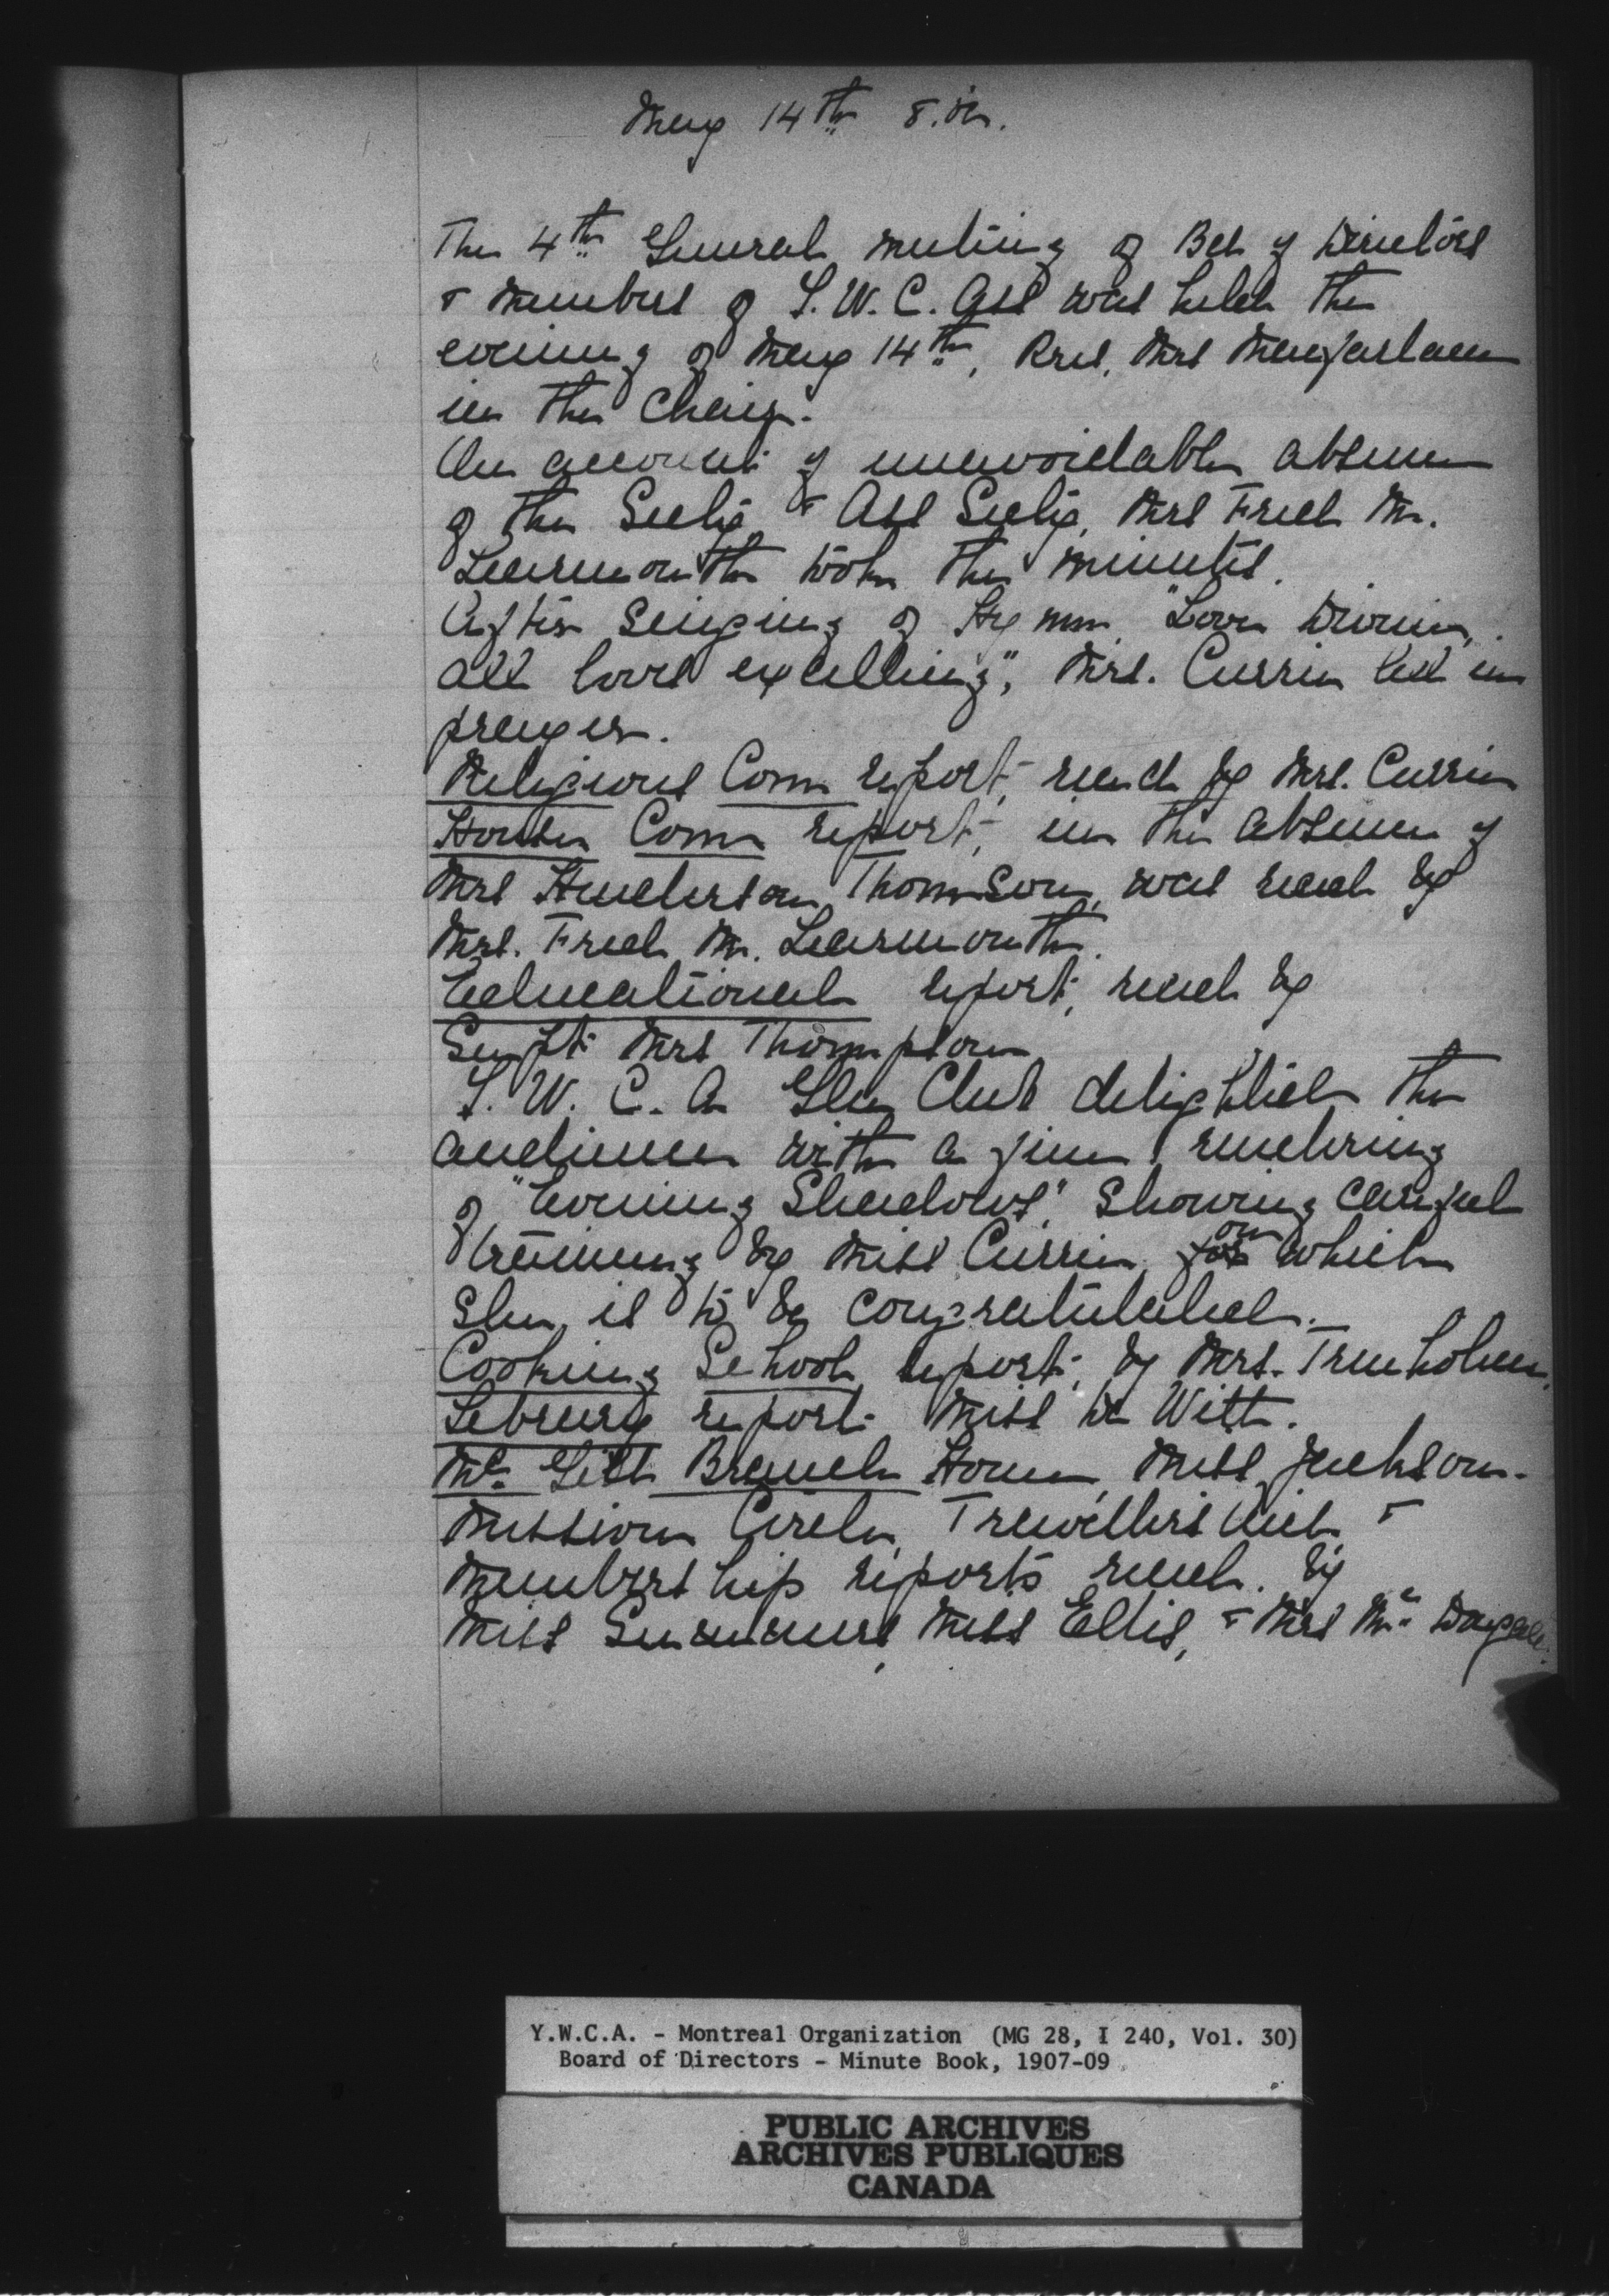 May 14th 8.
The 4th General meeting of Bd of Directors
& Members of Y.W.C. Ass was held the
evening of May 14th, Pres, Mrs Macfarlane
in the Chair.
On account of unavoidable absence
of the Secty & Ass Secty, Mrs Fred M.
Learmonth took the minutes.
After singing of Hymn "Love Divine,
all loves excelling", Mrs. Currie led in
prayer.
Religious Com report, read by Mrs. Currie
House Com report, in the absence of
Mrs Henderson Thomson, was read by
Mrs. Fred M. Learmonth.
Educational report, read by
Supt Mrs Thompson
Y.W.C.A Glee Club delighted the
audience with a fine rendering
of "Evening Shadows," showing careful
training by Miss Currie, for on which
she is to be congratulated.
Cooking School report, by Mrs. Trenholme.
Library report Miss De Witt.
McGill Branch Home, Miss Jackson.
Mission Circle, Travellers Aid &
Membership reports read by
Miss Miss Ellis, & Mrs Mc
Y.W.C.A. - Montreal Organization (MG 28, I 240, Vol. 30)
Board of Directors - Minute Book, 1907-09
PUBLIC ARCHIVES
ARCHIVES PUBLIQUES
CANADA